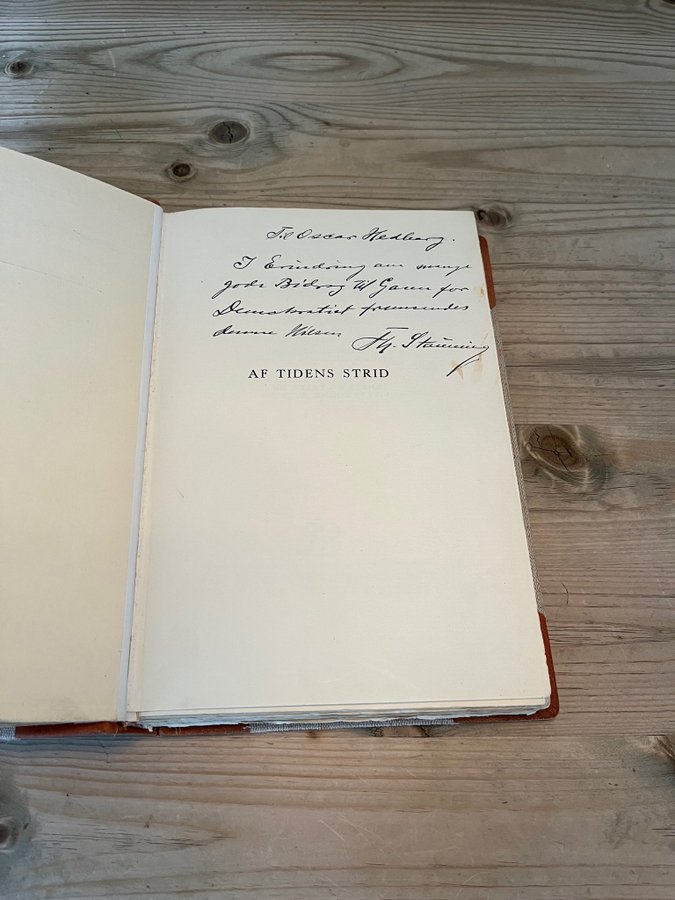 Til Oscar Hedberg.
I Erindring om mange
gode Bidrag til Gavn for
Demokratiet fremsendes
denne Hilsen Th. Stauning
AF TIDENS STRID